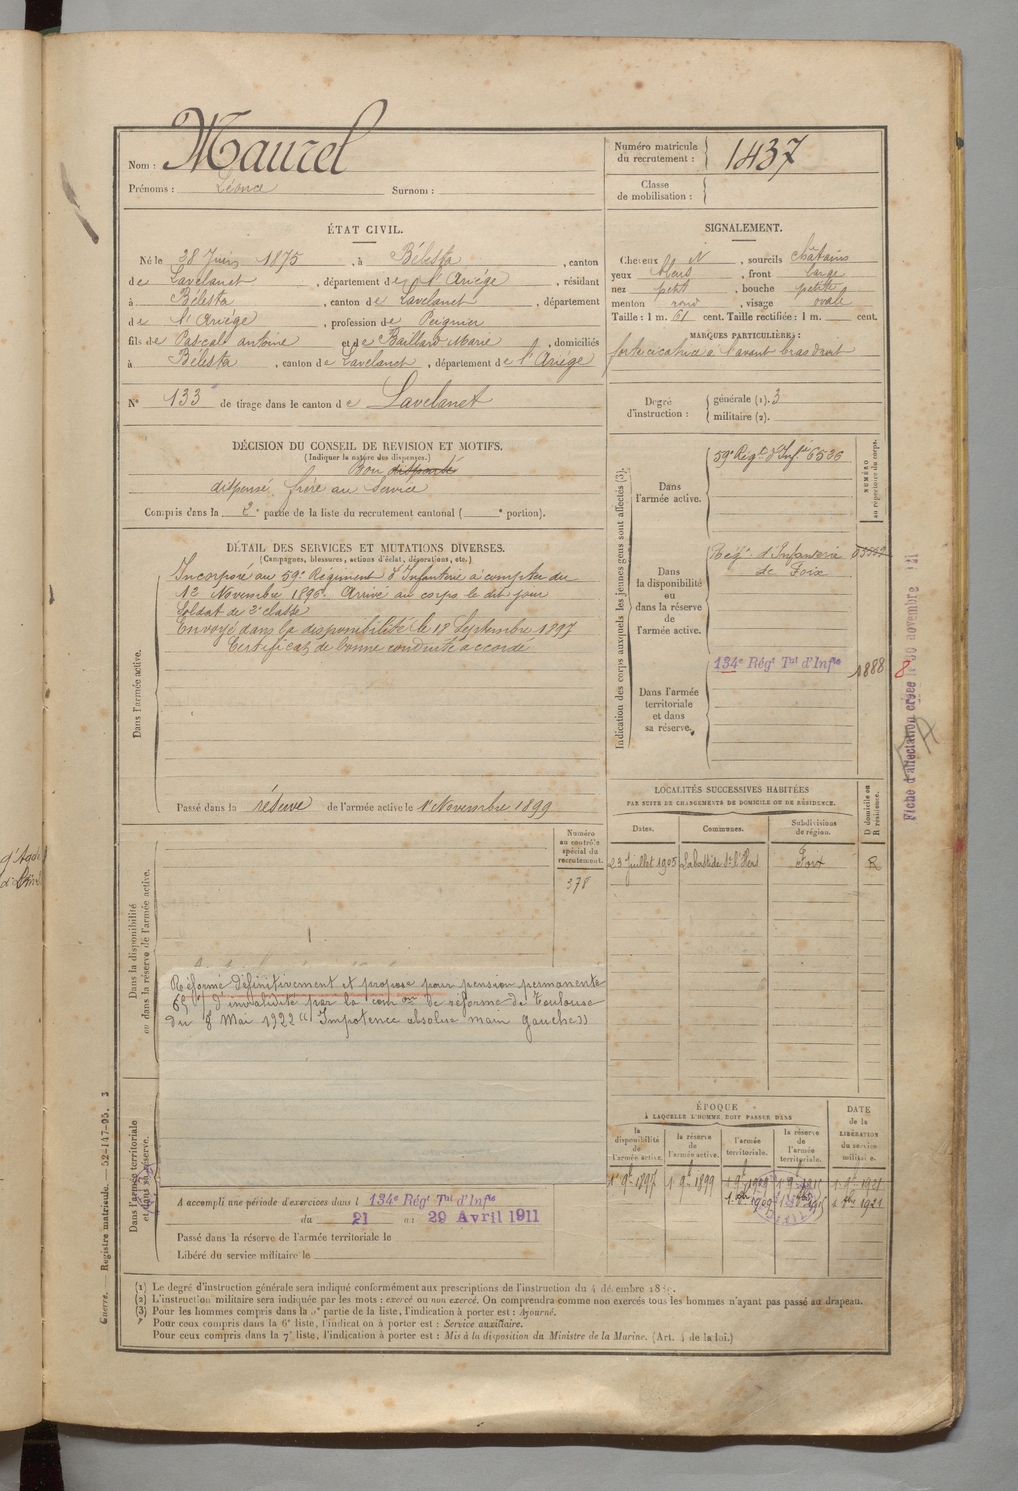 Nom : Maurel
Prénoms : Léonce Surnom :
Numéro matricule du recrutement : 1437
Classe de mobilisation :
ÉTAT CIVIL.
Né le 28 Juin 1875, à Bélesta, canton
de Lavelanet, département de l'Ariége, résidant
à Bélesta, canton de Lavelanet, département
de l'Ariége, profession de Peignier
fils de Pascal antoine et de Baillard Marie, domiciliés
à Bélesta, canton de Lavelanet, département de l'Ariége
N° 133 de tirage dans le canton de Lavelanet
SIGNALEMENT.
Cheveux N, sourcils châtains
yeux bleus, front large
nez petit, bouche petite
menton rond, visage ovale
Taille : 1 m. 61 cent. Taille rectifiée : 1 m. cent.
MARQUES PARTICULIÈRES :
forte cicatrice à l'avant bras droit
Degré d'instruction : générale (1). 3
militaire (2).
DÉCISION DU CONSEIL DE REVISION ET MOTIFS.
(Indiquer la nature des dispenses.)
Bon dispensé
dispensé frère au Service
Compris dans la 2e partie de la liste du recrutement cantonal ( e portion).
DÉTAIL DES SERVICES ET MUTATIONS DIVERSES.
(Campagnes, blessures, actions d'éclat, décorations, etc.)
Dans l'armée active.
Incorporé au 59e Régiment d'Infanterie à compter du
Novembre 1896. Arrivé au corps le dit jour
Soldat de 2e classe
Envoyé dans la disponibilité le 18 Septembre 1897
Certificat de bonne conduite accordé
Passé dans la réserve de l'armée active le 1er Novembre 1899
Indication des corps auxquels les jeunes gens sont affectés (3).
NUMÉRO au répertoire du corps.
Dans l'armée active.
59e Régt d'Infie 6536
Dans la disponibilité ou dans la réserve de l'armée active.
Régt d'Infanterie
de Foix
Dans l'armée territoriale et dans sa réserve.
134e Régt Tal d'Infie
1888
8
Fiche d'affectation créée le 30 novembre
LOCALITÉS SUCCESSIVES HABITÉES
PAR SUITE DE CHANGEMENTS DE DOMICILE OU DE RÉSIDENCE.
Dates. Communes. Subdivisions de région. D domicile ou R résidence.
23 Juillet 1905 Labastide s/ l'Hers Foix R
Dans la disponibilité ou dans la réserve de l'armée active.
Numéro au contrôle spécial du recrutement.
378
Réformé définitivement et proposé pour pension permanente
65 % d'invalidité par la comon de réforme de Toulouse
du 8 Mai 1922 "Impotence absolue main gauche"
Dans l'armée territoriale et dans sa réserve.
A accompli une période d'exercices dans l 134e Régt Tal d'Infie
du 21 au 29 Avril 1911
Passé dans la réserve de l'armée territoriale le
Libéré du service militaire le
ÉPOQUE
À LAQUELLE L'HOMME DOIT PASSER DANS
la disponibilité de l'armée active.
la réserve de l'armée active.
l'armée territoriale.
la réserve de l'armée territoriale.
DATE de la LIBÉRATION du service militaire.
1er 9bre 1897 1er 9bre 1899
1921
(1) Le degré d'instruction générale sera indiqué conformément aux prescriptions de l'instruction du 4 décembre
(2) L'instruction militaire sera indiquée par les mots : exercé ou non exercé. On comprendra comme non exercés tous les hommes n'ayant pas passé au drapeau.
(3) Pour les hommes compris dans la 5e partie de la liste, l'indication à porter est : Ajourné.
Pour ceux compris dans la 6e liste, l'indication à porter est : Service auxiliaire.
Pour ceux compris dans la 7e liste, l'indication à porter est : Mis à la disposition du Ministre de la Marine. (Art. 4 de la loi.)
Guerre. — Registre matricule. — 52-147-95. 3